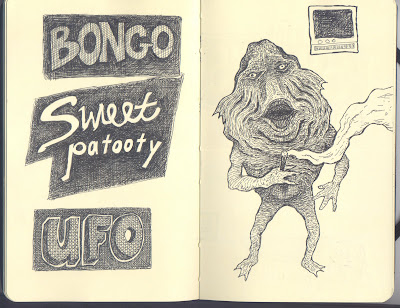 BONGO
Sweet
patooty
UFO